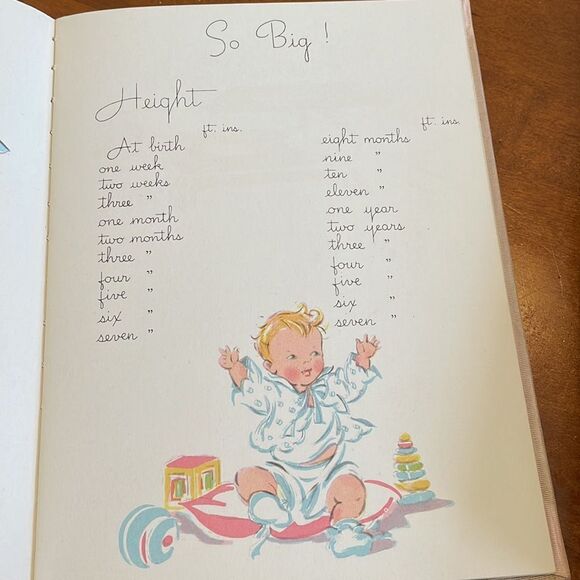 So Big!
Height
ft. ins.
At birth
one week
two weeks
three "
one month
two months
three "
four "
five "
six "
seven "
ft. ins.
eight months
nine "
ten "
eleven "
one year
two years
three "
four "
five "
six "
seven "